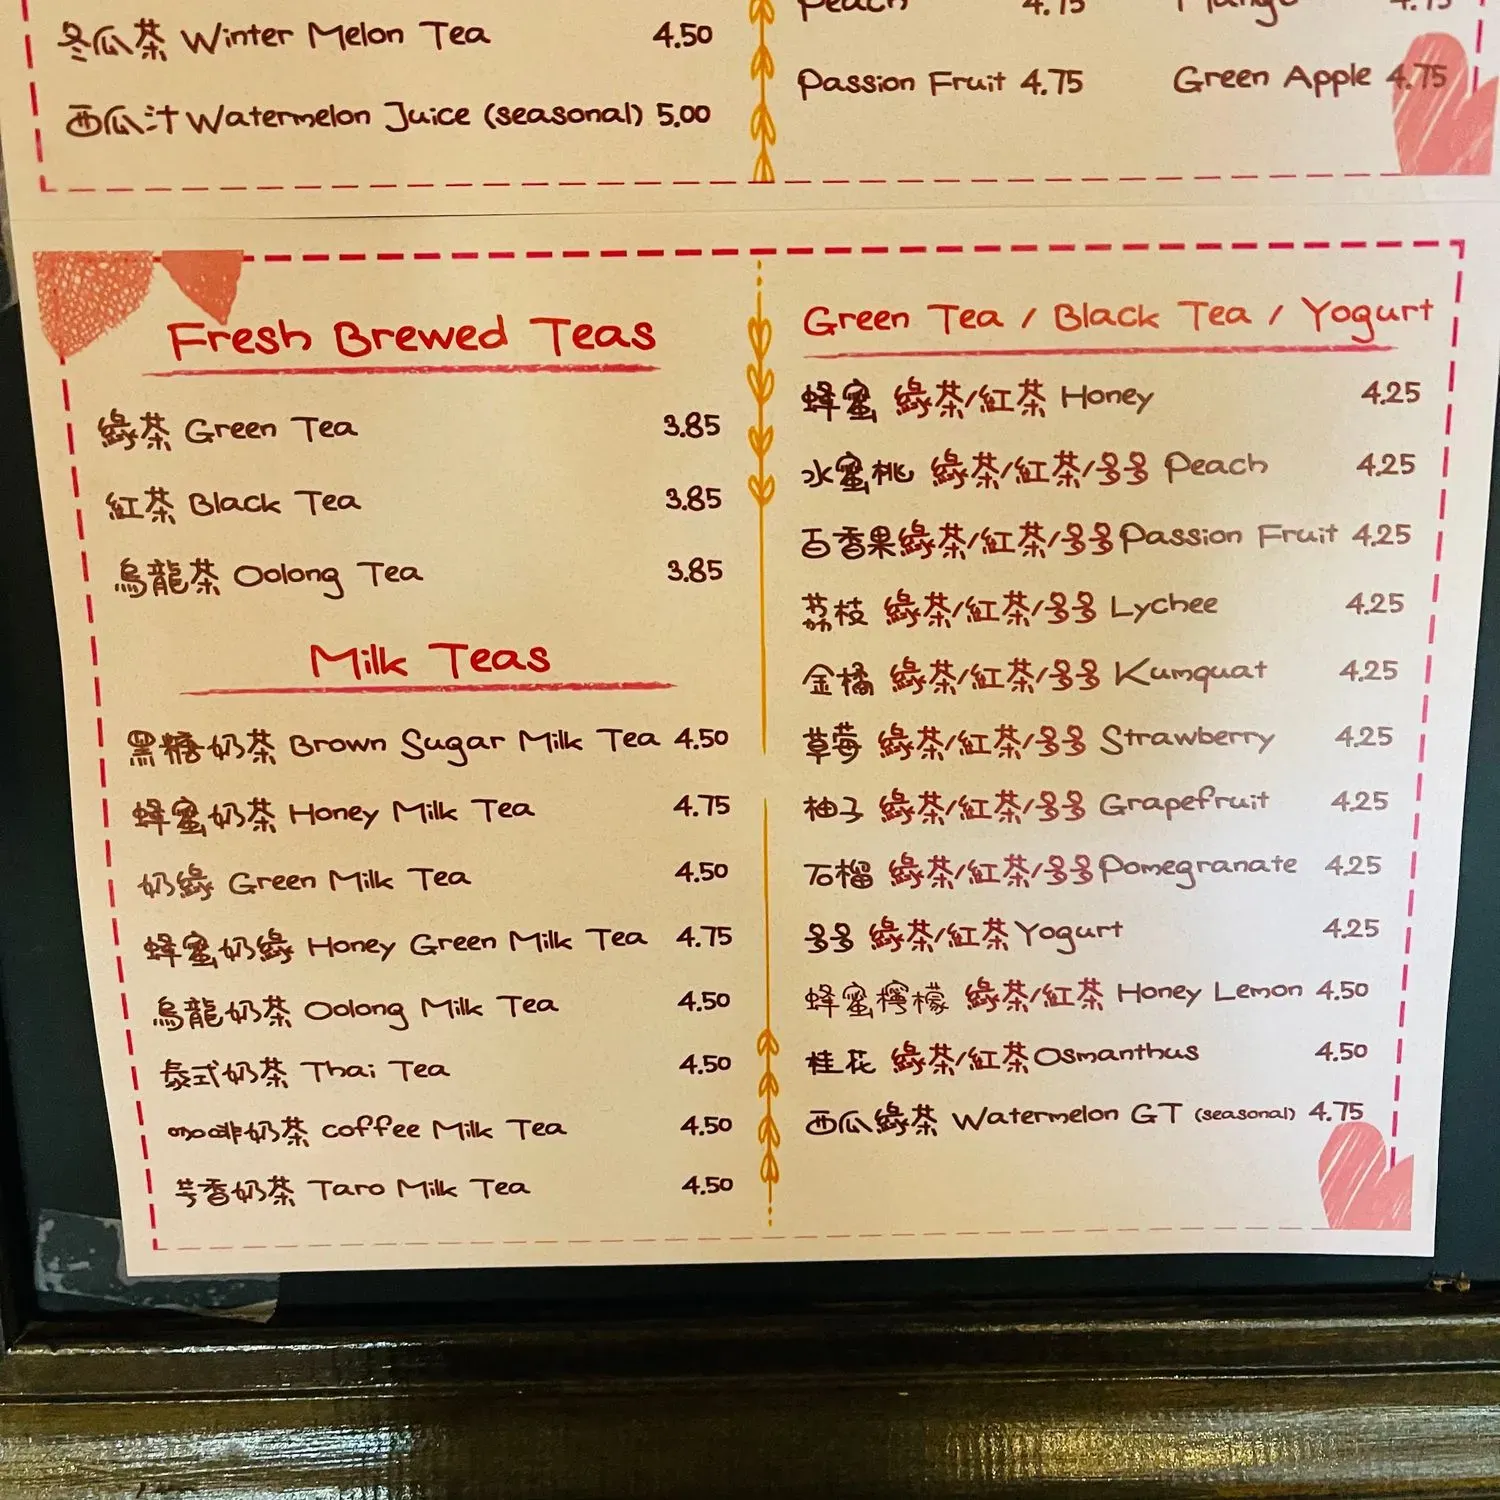 冬瓜茶 Winter Melon Tea 4.50
西瓜汁 Watermelon Juice (seasonal) 5.00
Peach 4.75 Mango 4.75
Passion Fruit 4.75 Green Apple 4.75
Fresh Brewed Teas
綠茶 Green Tea 3.85
紅茶 Black Tea 3.85
烏龍茶 Oolong Tea 3.85
Milk Teas
黑糖奶茶 Brown Sugar Milk Tea 4.50
蜂蜜奶茶 Honey Milk Tea 4.75
奶綠 Green Milk Tea 4.50
蜂蜜奶綠 Honey Green Milk Tea 4.75
烏龍奶茶 Oolong Milk Tea 4.50
泰式奶茶 Thai Tea 4.50
咖啡奶茶 coffee Milk Tea 4.50
芋香奶茶 Taro Milk Tea 4.50
Green Tea / Black Tea / Yogurt
蜂蜜 綠茶/紅茶 Honey 4.25
水蜜桃 綠茶/紅茶/多多 Peach 4.25
百香果綠茶/紅茶/多多 Passion Fruit 4.25
荔枝 綠茶/紅茶/多多 Lychee 4.25
金橘 綠茶/紅茶/多多 Kumquat 4.25
草莓 綠茶/紅茶/多多 Strawberry 4.25
柚子 綠茶/紅茶/多多 Grapefruit 4.25
石榴 綠茶/紅茶/多多 Pomegranate 4.25
多多 綠茶/紅茶 Yogurt 4.25
蜂蜜檸檬 綠茶/紅茶 Honey Lemon 4.50
桂花 綠茶/紅茶 Osmanthus 4.50
西瓜綠茶 Watermelon GT (seasonal) 4.75